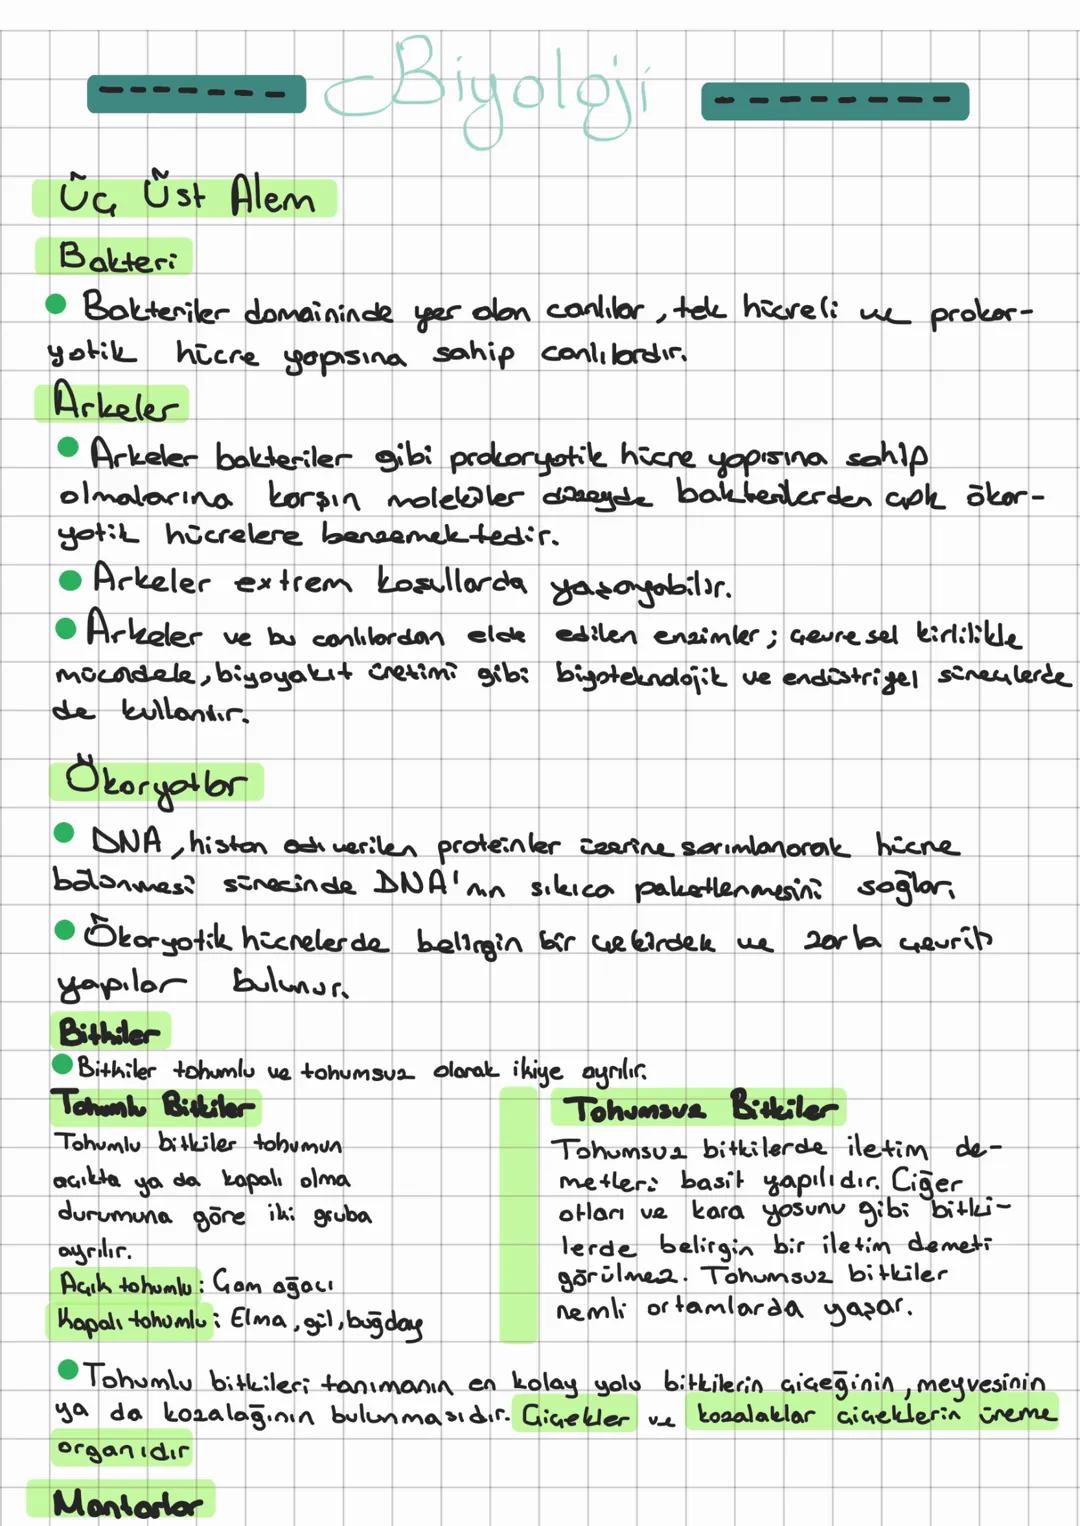 Biyoloji
Üç Üst Alem
Bakteri
Bakteriler domaininde yer alan canlılar, tek hücreli ve prokar-
yotik hücre yapısına sahip canlılardır.
Arkeler
Arkeler bakteriler gibi prokaryotik hücre yapısına sahip
olmalarına karşın moleküler düzeyde bakterilerden çok ökar-
yotik hücrelere benzemektedir.
Arkeler extrem koşullarda yaşayabilir.
Arkeler ve bu canlılardan elde edilen enzimler; çevresel kirlilikle
mücadele, biyoyakıt üretimi gibi biyoteknolojik ve endüstriyel süreçlerde
de kullanılır.
Ökaryotlar
DNA, histon adı verilen proteinler üzerine sarımlanarak hücre
bölünmesi sürecinde DNA'nın sıkıca paketlenmesini sağlar.
Ökaryotik hücrelerde belirgin bir çekirdek ve zarla çevrili
yapılar bulunur.
Bitkiler
Bitkiler tohumlu ve tohumsuz olarak ikiye ayrılır.
Tohumlu Bitkiler
Tohumlu bitkiler tohumun
açıkta ya da kapalı olma
durumuna göre iki gruba
ayrılır.
Açık tohumlu: Çam ağacı
Kapalı tohumlu: Elma, gül, buğday
Tohumsuz Bitkiler
Tohumsuz bitkilerde iletim de-
metleri basit yapılıdır. Ciğer
otları ve kara yosunu gibi bitki-
lerde belirgin bir iletim demeti
görülmez. Tohumsuz bitkiler
nemli ortamlarda yaşar.
Tohumlu bitkileri tanımanın en kolay yolu bitkilerin çiçeğinin, meyvesinin
ya da kozalağının bulunmasıdır. Çiçekler ve kozalaklar çiçeklerin üreme
organıdır
Mantarlar